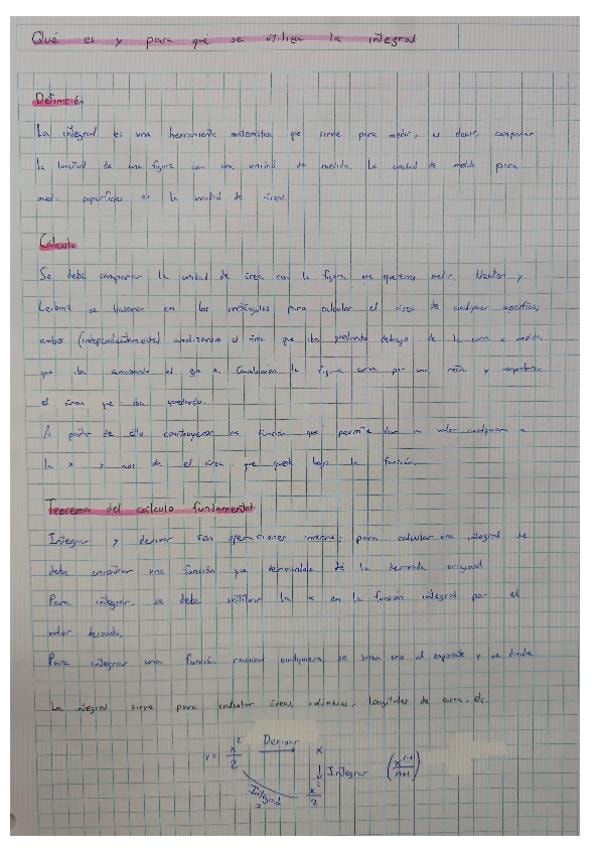 Qué es y para qué se utiliza la integral
Definición
La integral es una herramienta matemática que sirve para medir, es decir, comparar
la longitud de una figura con una unidad de medida. La unidad de medida para
medir superficies es la unidad de área.
Cálculo
Se debe comparar la unidad de área con la figura que queremos medir. Newton y
Leibniz se basaron en los rectángulos para calcular el área de cualquier superficie,
ambos (independientemente) analizaron el área que iba quedando debajo de la curva a medida
que iba avanzando el eje x. la figura curva por una recta y
el área que iba quedando.
A partir de ello construyeron la función que permite dar un valor cualquiera a
la x y nos da el área que queda bajo la función.
Teorema del cálculo fundamental
Integrar y derivar son operaciones inversas; para calcular una integral se
debe encontrar una función que derivándola dé la derivada original
Para integrar, se debe sustituir la x en la función integral por el
valor deseado.
Para integrar una función racional cualquiera, se suma uno al exponente y se divide
La integral sirve para calcular áreas, volúmenes, longitudes de curva, etc.
x²/2 Derivar x
Integrar (xⁿ⁺¹/n+1)
Integral x²/2